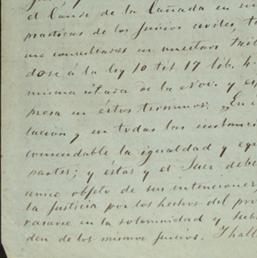 el Conde de la Cañada en su
practicas de los juicios civiles, t
dose á la ley 10 tit 17 lib. 4
misma clase de la
presa en estos terminos: "En
lacion y en todas las
comendable la igualdad y equ
partes; y éstas y el Juez debe
unico objeto de sus intenciones
la justicia por los hechos del pro
rarse en la solemnidad y
den de los mismos juicios.